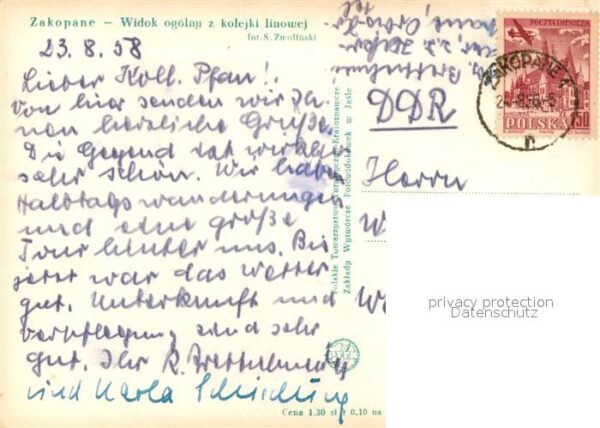 Zakopane – Widok ogólny z kolejki linowej
fot. S. Zwoliński
23.8.58
Lieber Koll. Pfan!
Von hier senden wir Ih-
nen herzliche Grüße.
Die Gegend ist wirklich
sehr schön. Wir haben
Halbtagswanderungen
und eine große
Tour hinter uns. Bis
jetzt war das Wetter
gut. Unterkunft und
Verpflegung sind sehr
gut. Ihr R.
und Karla
Cena 1.30 zł + 0.10 na
Polskie Towarzystwo Turystyczno-Krajoznawcze
Zakłady Wytwórcze Fotowidokówek w Jaśle
DDR
Herrn
W
We
POCZTA LOTNICZA
POLSKA
1,50
ZAKOPANE
privacy protection
Datenschutz